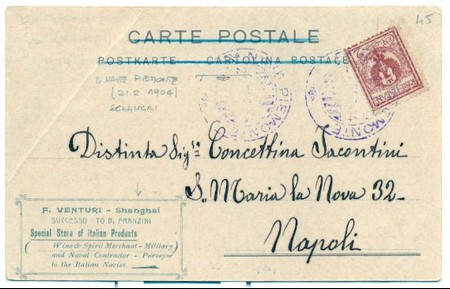 45
CARTE POSTALE
POSTKARTE CARTOLINA POSTALE
(21.2 1904)
Distinta Sig.ra Concettina Iacontini
S. Maria la Nova 32-
Napoli
F. VENTURI - Shanghai
SUCCESSO TO B. FRANZINI
Special Store of Italian Products
Wine & Spirit Merchant - Military
and Naval Contractor - Purveyor
to the Italian Navies.